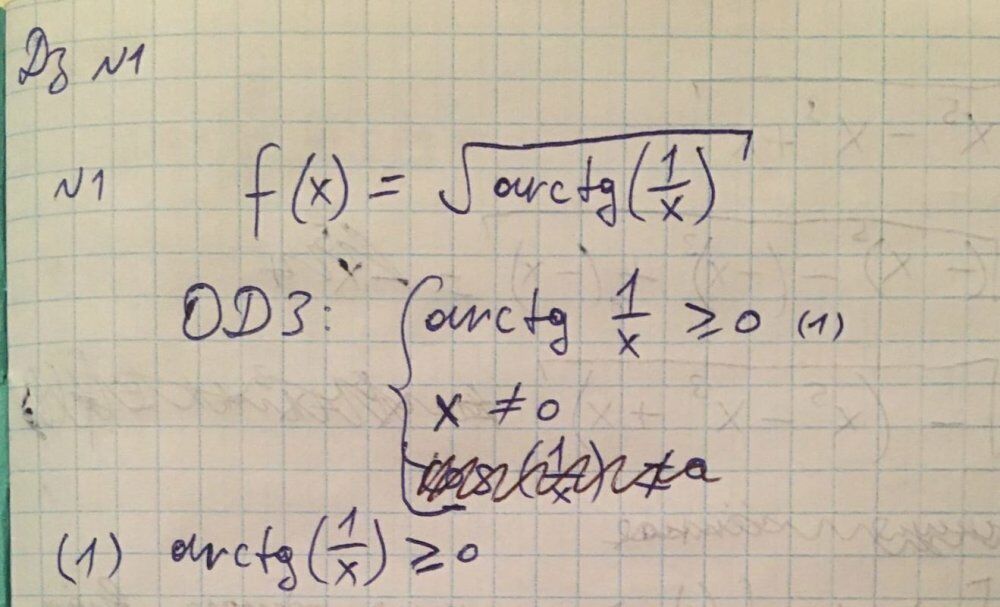 Дз №1
№1 f(x) = √(arctg(1/x))
ОДЗ: { arctg 1/x ≥ 0 (1)
x ≠ 0
(1) arctg(1/x) ≥ 0